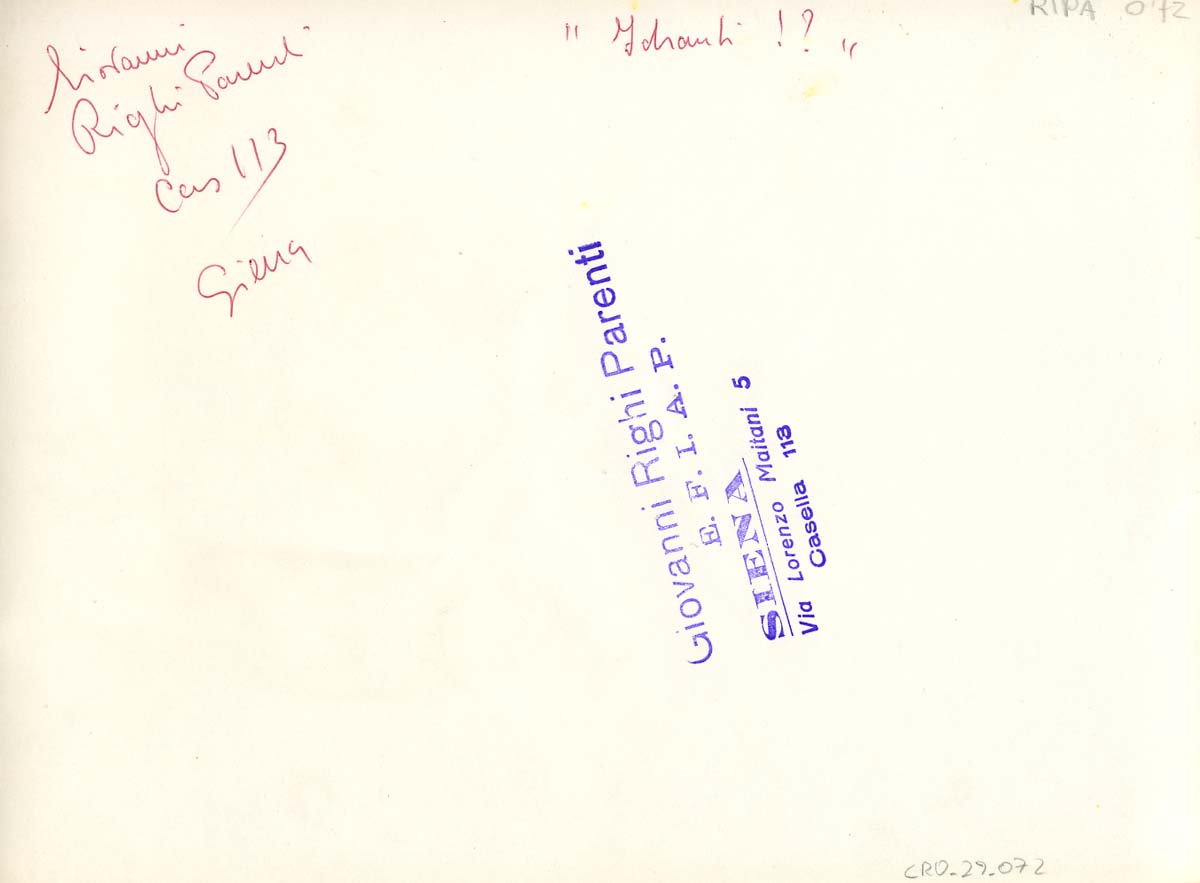 RIPA 072
" Idranti !? "
Giovanni
Righi Parenti
Cas 113
Siena
Giovanni Righi Parenti
E. F. I. A. P.
SIENA
Via Lorenzo Maitani 5
Casella 113
CRO_29_072